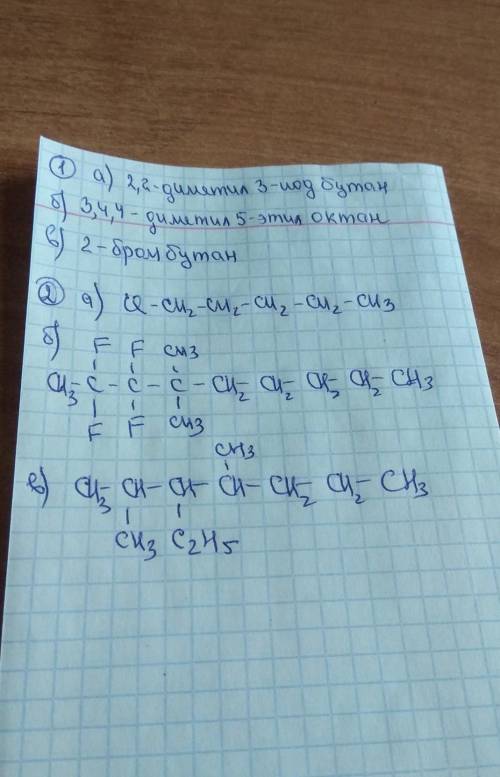 1 а) 2,2-диметил 3-иод бутан
б) 3,4,4-диметил 5-этил октан
в) 2-бром бутан
2 а) Cl-CH2-CH2-CH2-CH2-CH3
б) F F CH3
CH3-C-C-C-CH2-CH2-CH2-CH2-CH3
F F CH3
CH3
в) CH3-CH-CH-CH-CH2-CH2-CH3
CH3 C2H5